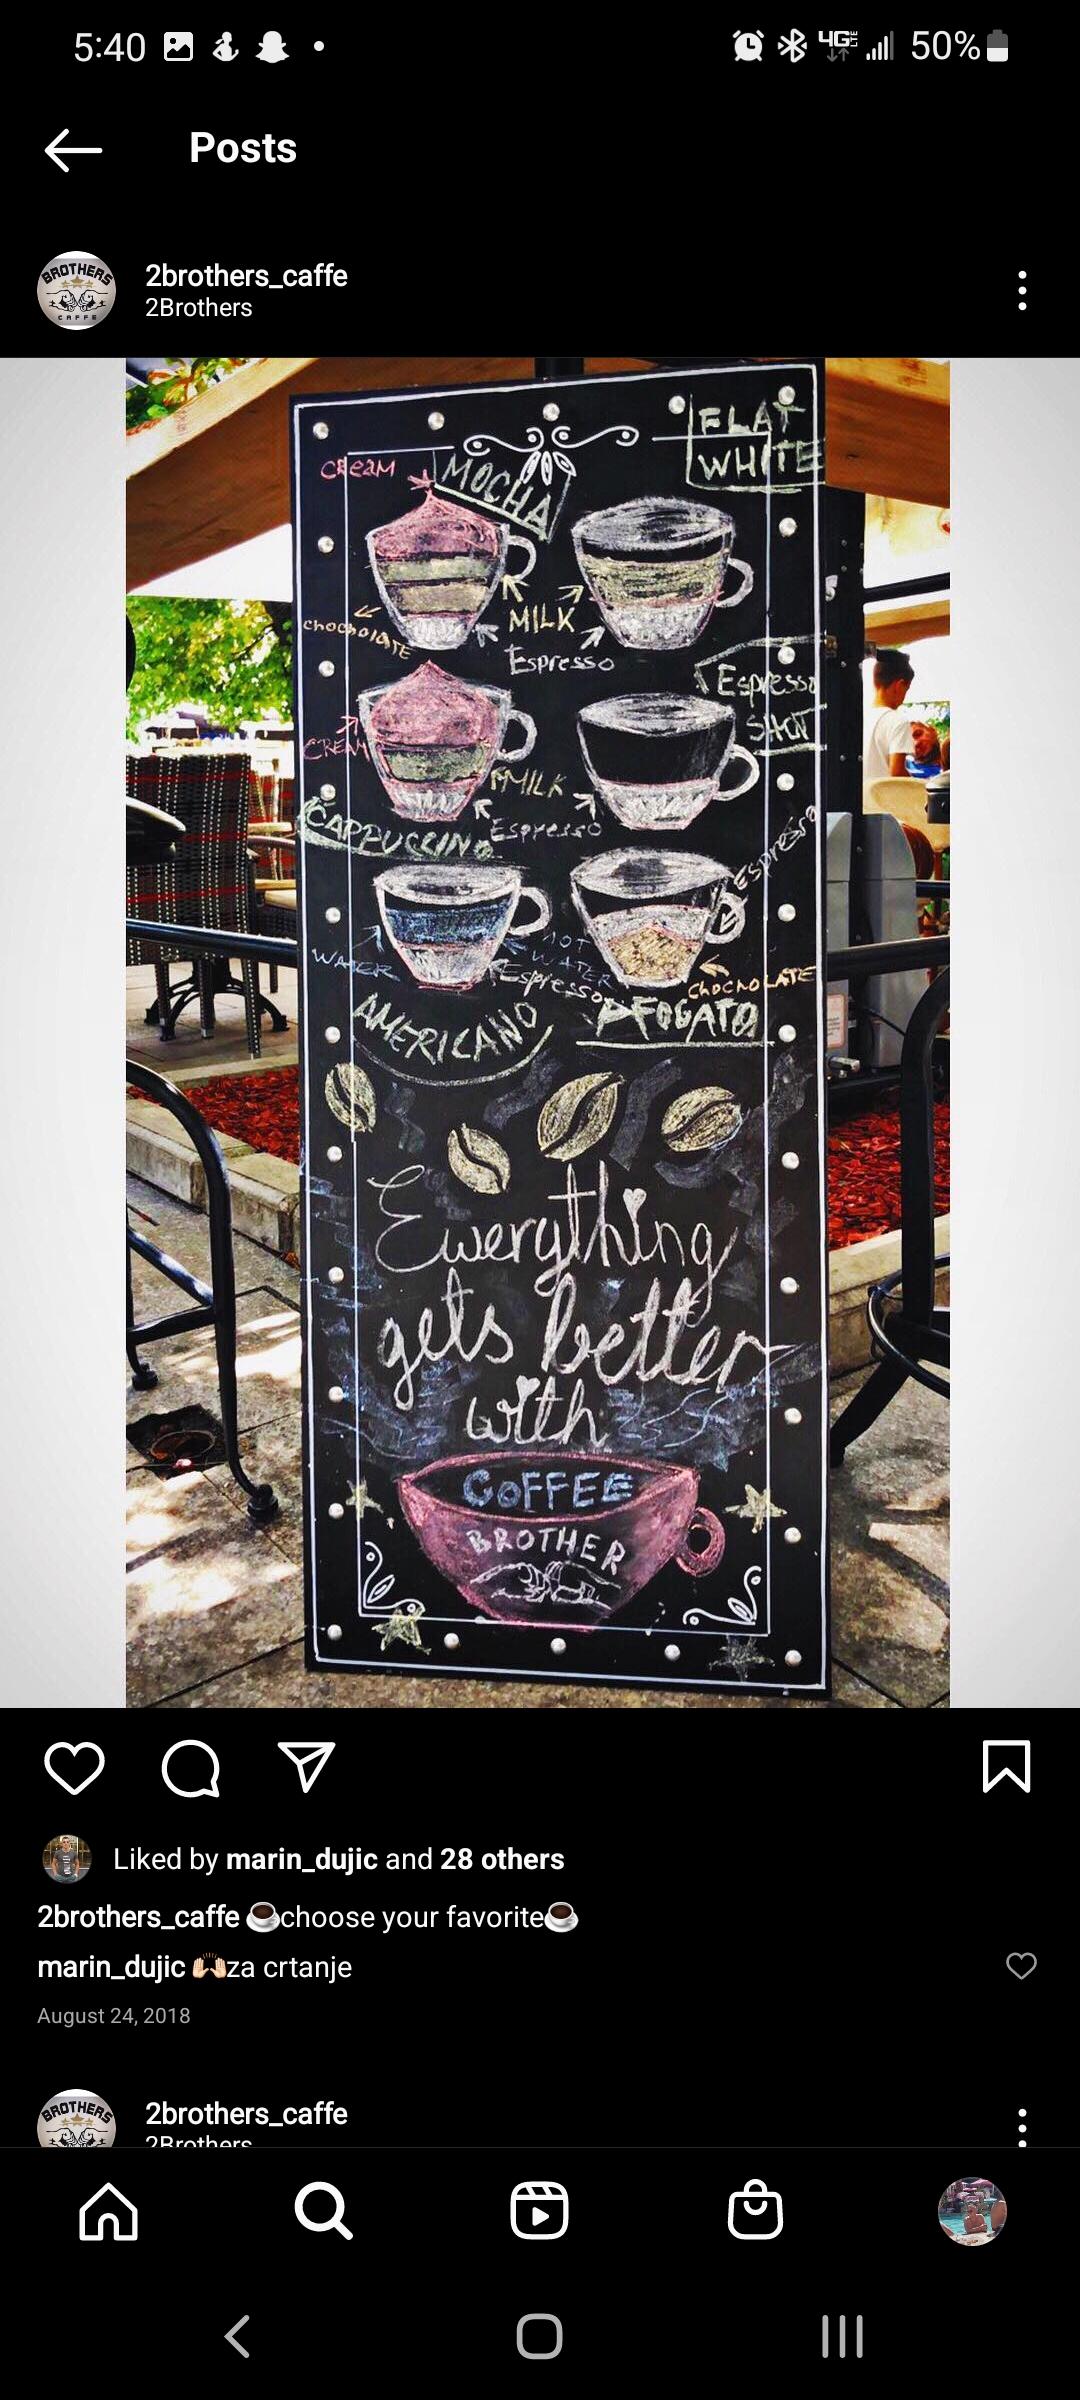 5:40
4G LTE 50%
Posts
BROTHERS
CAFFE
2brothers_caffe
2Brothers
FLAT
WHITE
CReaM
MOCHA
MILK
chocholate
Espresso
Espresso
SHOT
CREAM
MILK
Espresso
CAPPUCCINO
Espresso
WATER
HOT
WATER
Espresso
CHOCHOLATE
AMERICANO
AFOGATO
Ewerything
gets better
with
COFFEE
BROTHER
Liked by marin_dujic and 28 others
2brothers_caffe ☕choose your favorite☕
marin_dujic 🙌🏻za crtanje
August 24, 2018
BROTHERS
2brothers_caffe
2Brothers